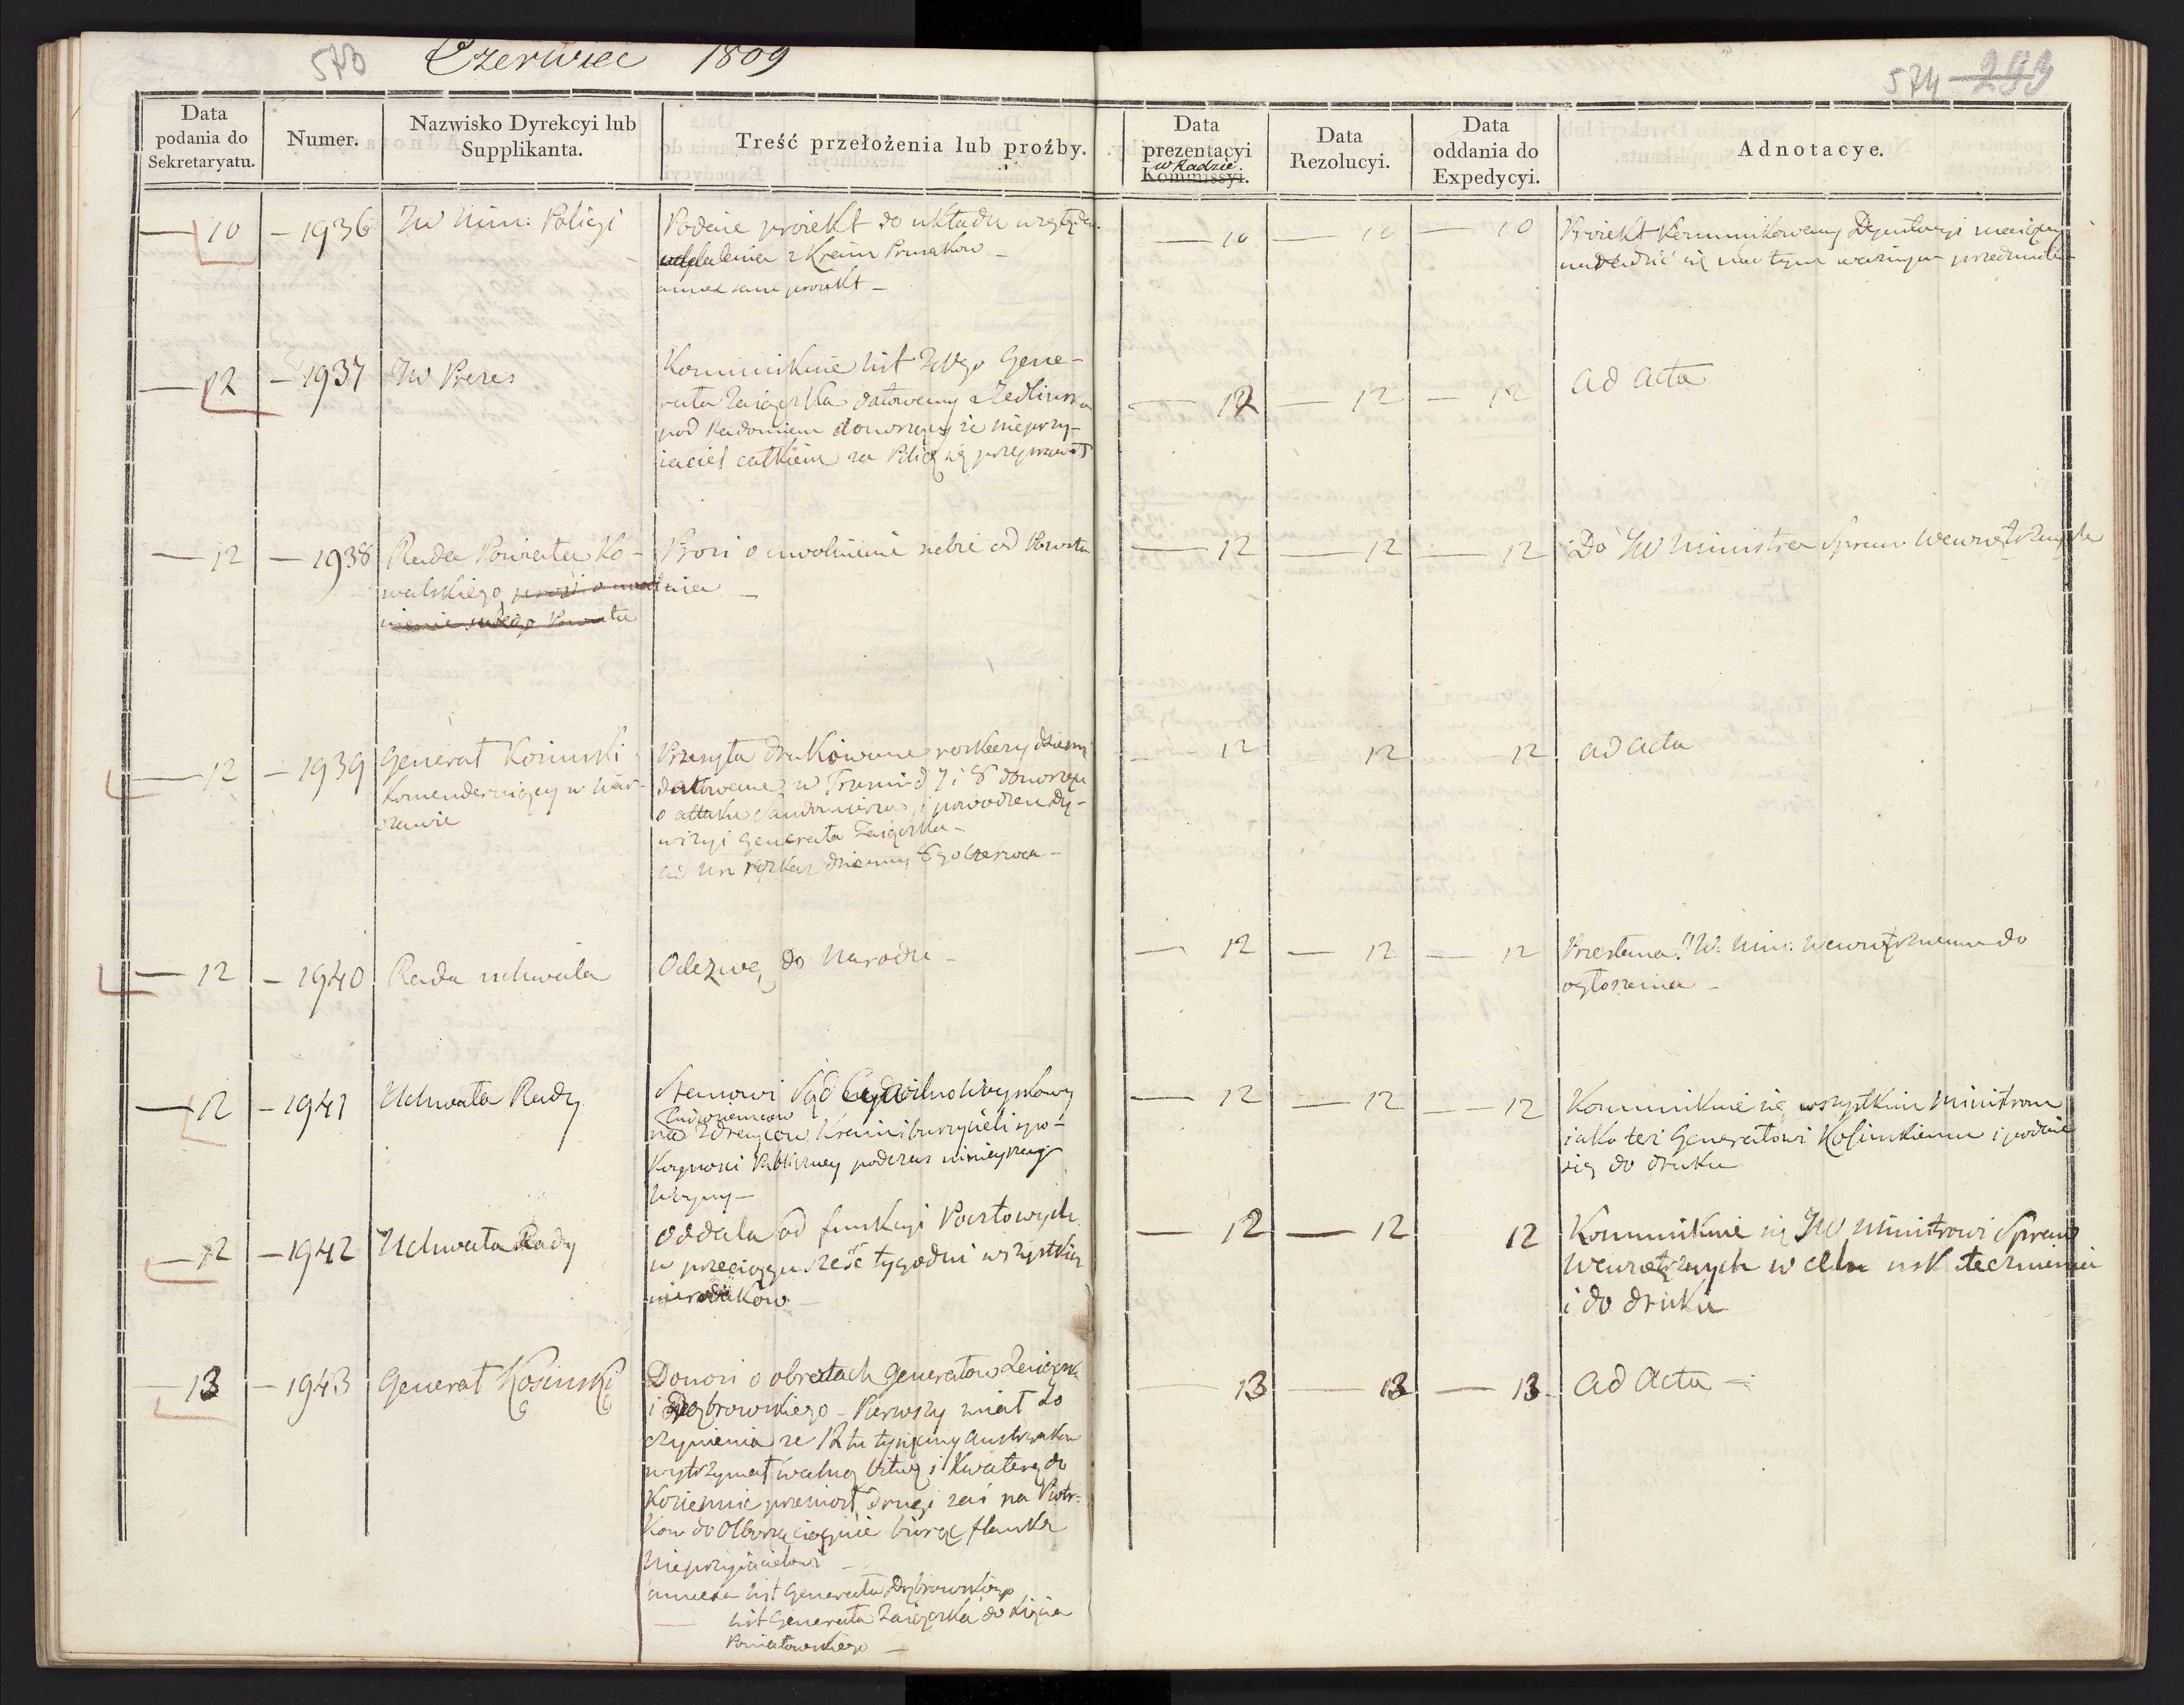 573 Czerwiec 1809
574 293
Data podania do Sekretaryatu.
Numer.
Nazwisko Dyrekcyi lub Supplikanta.
Treść przełożenia lub proźby.
Data prezentacyi w Radzie Kommissyi.
Data Rezolucyi.
Data oddania do Expedycyi.
Adnotacye.
— 10 — 1936 JW Min: Policyi
Podaie proiekt do układu względem
oddalenia z Kraiu Prusaków —
annex sam proiekt —
— 10 — 10 — 10
Proiekt kommunikowany Deputacyi maiącey
naradzić się nad tym ważnym przedmiotem
— 12 — 1937 JW Prezes
Kommunikuie list JWgo Gene-
rała Zaiączka datowany z Jedlińska
pod Radomiem donoszący że nieprzy-
iaciel całkiem za Pilicę się przeprawił
— 12 — 12 — 12
ad acta
— 12 — 1938 Rada Powiatu Ko-
walskiego prosi o uwol
nienie swego Powiatu
Prosi o uwolnienie siebie od Powsta
nia —
— 12 — 12 — 12
Do JW Ministra Spraw Wewnętrznych
— 12 — 1939 Generał Kosinski
Komenderuiący w War-
szawie
Przesyła drukowane roskazy dzienne
datowane w Trzesni d 7 i 8 donoszące
o attaku Sandomirza i powodzeniu dy-
wizyi Generała Zaiączka —
ad Nn rozkaz dzienny 8go Czerwca —
— 12 — 12 — 12
ad acta
— 12 — 1940 Rada uchwala
Odezwę do Narodu —
— 12 — 12 — 12
Przesłana JW: Min: Wewnętrznemu do
ogłoszenia —
— 12 — 1941 Uchwała Rady
Stanowi Sąd Cywilno Woyskowy
Cudzoziemców
nad Zdraycow Kraiu i burzycieli spo-
koyności Publiczney podczas ninieyszey
Woyny —
— 12 — 12 — 12
Kommunikuie się wszystkim Ministrom
iako też Generałowi Kosinskiemu i podaie
się do druku
— 12 — 1942 Uchwała Rady
Oddala od funkcyi Pocztowych
w przeciągu sześć tygodni wszystkich
nierodaków —
— 12 — 12 12
Kommunikuie się JW Ministrowi Spraw
Wewnętrznych w celu uskutecznienia
i do druku
— 13 — 1943 Generał Kosinski
Donosi o obrotach Generałow Zaiączka
i Dąbrowskiego — Pierwszy miał do
czynienia ze 12tu tysięcmy Austryakow
wytrzymał walną bitwę i Kwaterę do
Kozienic przeniosł drugi zaś na Piotr-
kow do ciągnie biorąc flankę
Nieprzyiacielowi —
annexa list Generała Dąbrowskiego
— list Generała Zaiączka do Xięcia
Poniatowskiego —
— 13 — 13 — 13
ad acta —